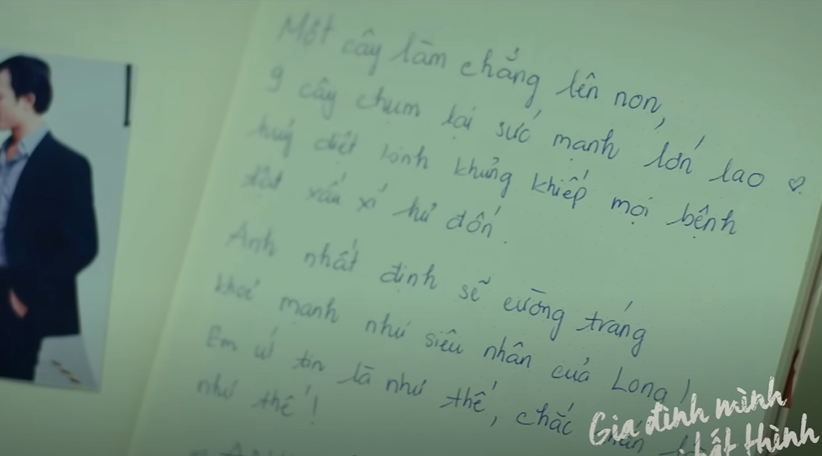 Một cây làm chẳng lên non,
9 cây chụm lại sức mạnh lớn lao ♡.
huỷ diệt kinh khủng khiếp mọi bệnh
tật xấu xí hư đốn.
Anh nhất định sẽ cường tráng
khoẻ mạnh như siêu nhân của Long!
Em ứ tin là như thế, chắc
như thế!
Gia đình mình
thình